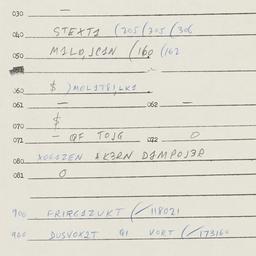 030 —
040 STEXT1 (205/205/306
050 M1L0,JC1N (160 (162
060 $ )MOL1T81,LK1
061 — 062 —
070 $
071 — QF TOJG 072 O
080 XOGOZEN &K3RN D1MPOJ3R
081 O
900 FRIRG1ZUKT (/118021
900 DUSVOX2T Q1 VORT (/173160